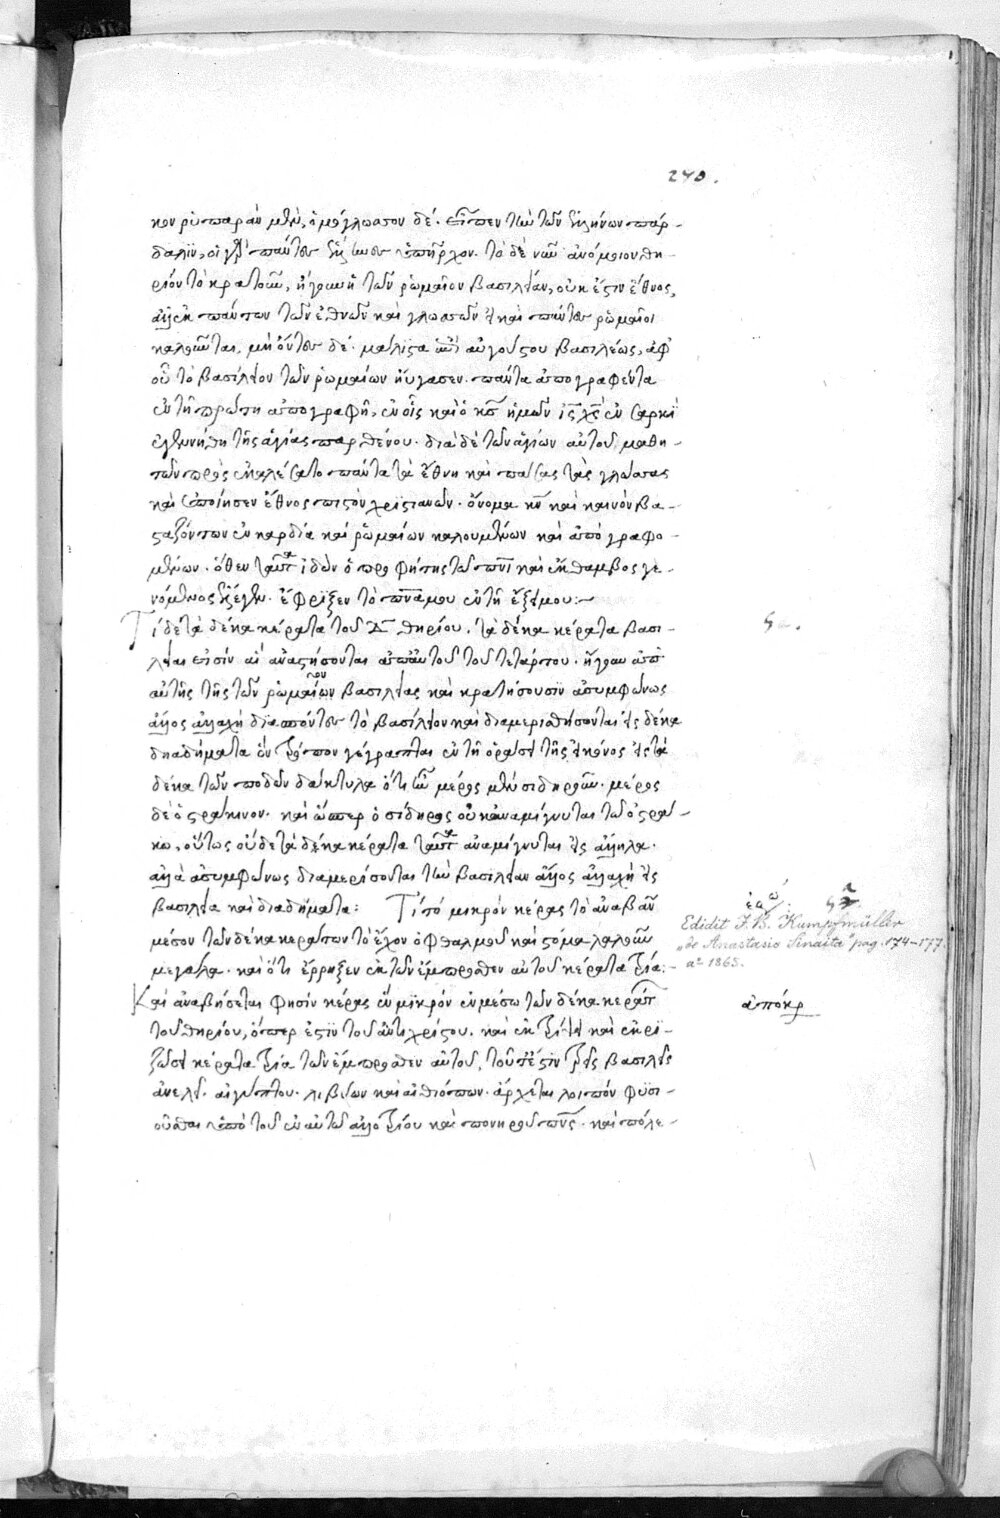 240.
κον ρυπαρὰν μὲν, ὁμόγλωσσον δέ. εἶπεν τὴν τῶν ἑλλήνων πάρ-
δαλϊν, οἱ γὰρ πάντες ἕλληνες ὑπῆρχον. τὸ δὲ νῦν ἀνόμοιον θη-
ρίον τὸ κρατοῦν, ἤγουν ἡ τῶν ῥωμαίων βασιλείαν, οὐκ ἔστιν ἔθνος,
ἀλλ' ἐκ πάντων τῶν ἐθνῶν καὶ γλωσσῶν εἰσὶ καὶ πάντες ῥωμαῖοι
καλοῦνται, μὴ ὄντες δέ. μάλιστα ἀπὸ αὐγούστου βασιλέως, ἀφ'
οὗ τὸ βασίλειον τῶν ῥωμαίων ηὔγασεν. πάντα ἀπογραφέντα
ἐν τῇ πρώτῃ ἀπογραφῇ, ἐν οἷς καὶ ὁ κς ἡμῶν ις χς ἐν σαρκὶ
ἐγεννήθη τῆς ἁγίας παρθένου. διὰ δὲ τῶν ἁγίων αὐτοῦ μαθη-
τῶν προσεκαλέσατο πάντα τὰ ἔθνη καὶ πάσας τὰς γλώσσας
καὶ ἐποίησεν ἔθνος πιστὸν χριστιανῶν. ὄνομα κυ καὶ καινὸν βα-
σταζόντων ἐν καρδία καὶ ῥωμαίων καλουμένων καὶ ἀπογραφο-
μένων. ὅθεν ταῦτα ἰδὼν ὁ προφήτης τῶ πνι καὶ ἔκθαμβος γε-
νόμενος ἔλεγεν. ἔφριξεν τὸ πνα μου ἐν τῇ ἕξει μου:~
Τί δὲ τὰ δέκα κέρατα τοῦ Δ θηρίου. τὰ δέκα κέρατα βασι-
λεῖαι εἰσὶν αἳ ἀναστήσονται ἀπ' αὐτοῦ τοῦ τετάρτου. ἤγουν ἀπ'
αὐτῆς τῆς τῶν ῥωμαίων βασιλείας καὶ κρατήσουσιν ἀσυμφώνως
ἄλλος ἀλλαχῆ διασπῶντες τὸ βασίλειον καὶ διαμερισθήσονται εἰς δέκα
διαδήματα ὃν τρόπον γέγραπται ἐν τῇ ὁράσει τῆς εἰκόνος εἰς τὰ
δέκα τῶν ποδῶν δάκτυλα ὅτι ἦν μέρος μὲν σιδηροῦν. μέρος
δὲ ὀστράκινον. καὶ ὥσπερ ὁ σίδηρος οὐκ ἀναμίγνυται τῶ ὀστρά-
κω, οὕτως οὐδὲ τὰ δέκα κέρατα ταῦτα ἀναμίγνυται εἰς ἄλληλα.
ἀλλὰ ἀσυμφώνως διαμερίσονται τὴν βασιλείαν ἄλλος ἀλλαχῆ εἰς
βασιλεῖα καὶ διαδήματα: Τί τὸ μικρὸν κέρας τὸ ἀναβὰν
μέσον τῶν δέκα κεράτων τὸ ἔχον ὀφθαλμοὺς καὶ στόμα λαλοῦν
μεγάλα. καὶ ὅτι ἔρρηξεν ἐκ τῶν ἔμπροσθεν αὐτοῦ κέρατα τρία:-
Καὶ ἀναβήσεται φησὶν κέρας ἓν μϊκρὸν ἐν μέσω τῶν δέκα κεράτ
τοῦ θηρίου, ὅπερ ἐστὶν τοῦ ἀντιχρίστου. καὶ ἐκτρίψει καὶ ἐκρϊ-
ζώσει κέρατα τρία τῶν ἔμπροσθεν αὐτοῦ, τουτέστιν τρεῖς βασιλεῖς
ἀνελεῖ. αἰγύπτου. λιβύων καὶ αἰθιόπων. ἄρχεται λοιπὸν φϋσι-
οῦσθαι ὑπὸ τοῦ ἐν αὐτῶ ἀλλοτρίου καὶ πονηροῦ πνς. καὶ πόλε-
Edidit J. B. Kumpfmüller
„de Anastasio Sinaita" pag. 174-177.
aº 1865.
ἀπόκρ